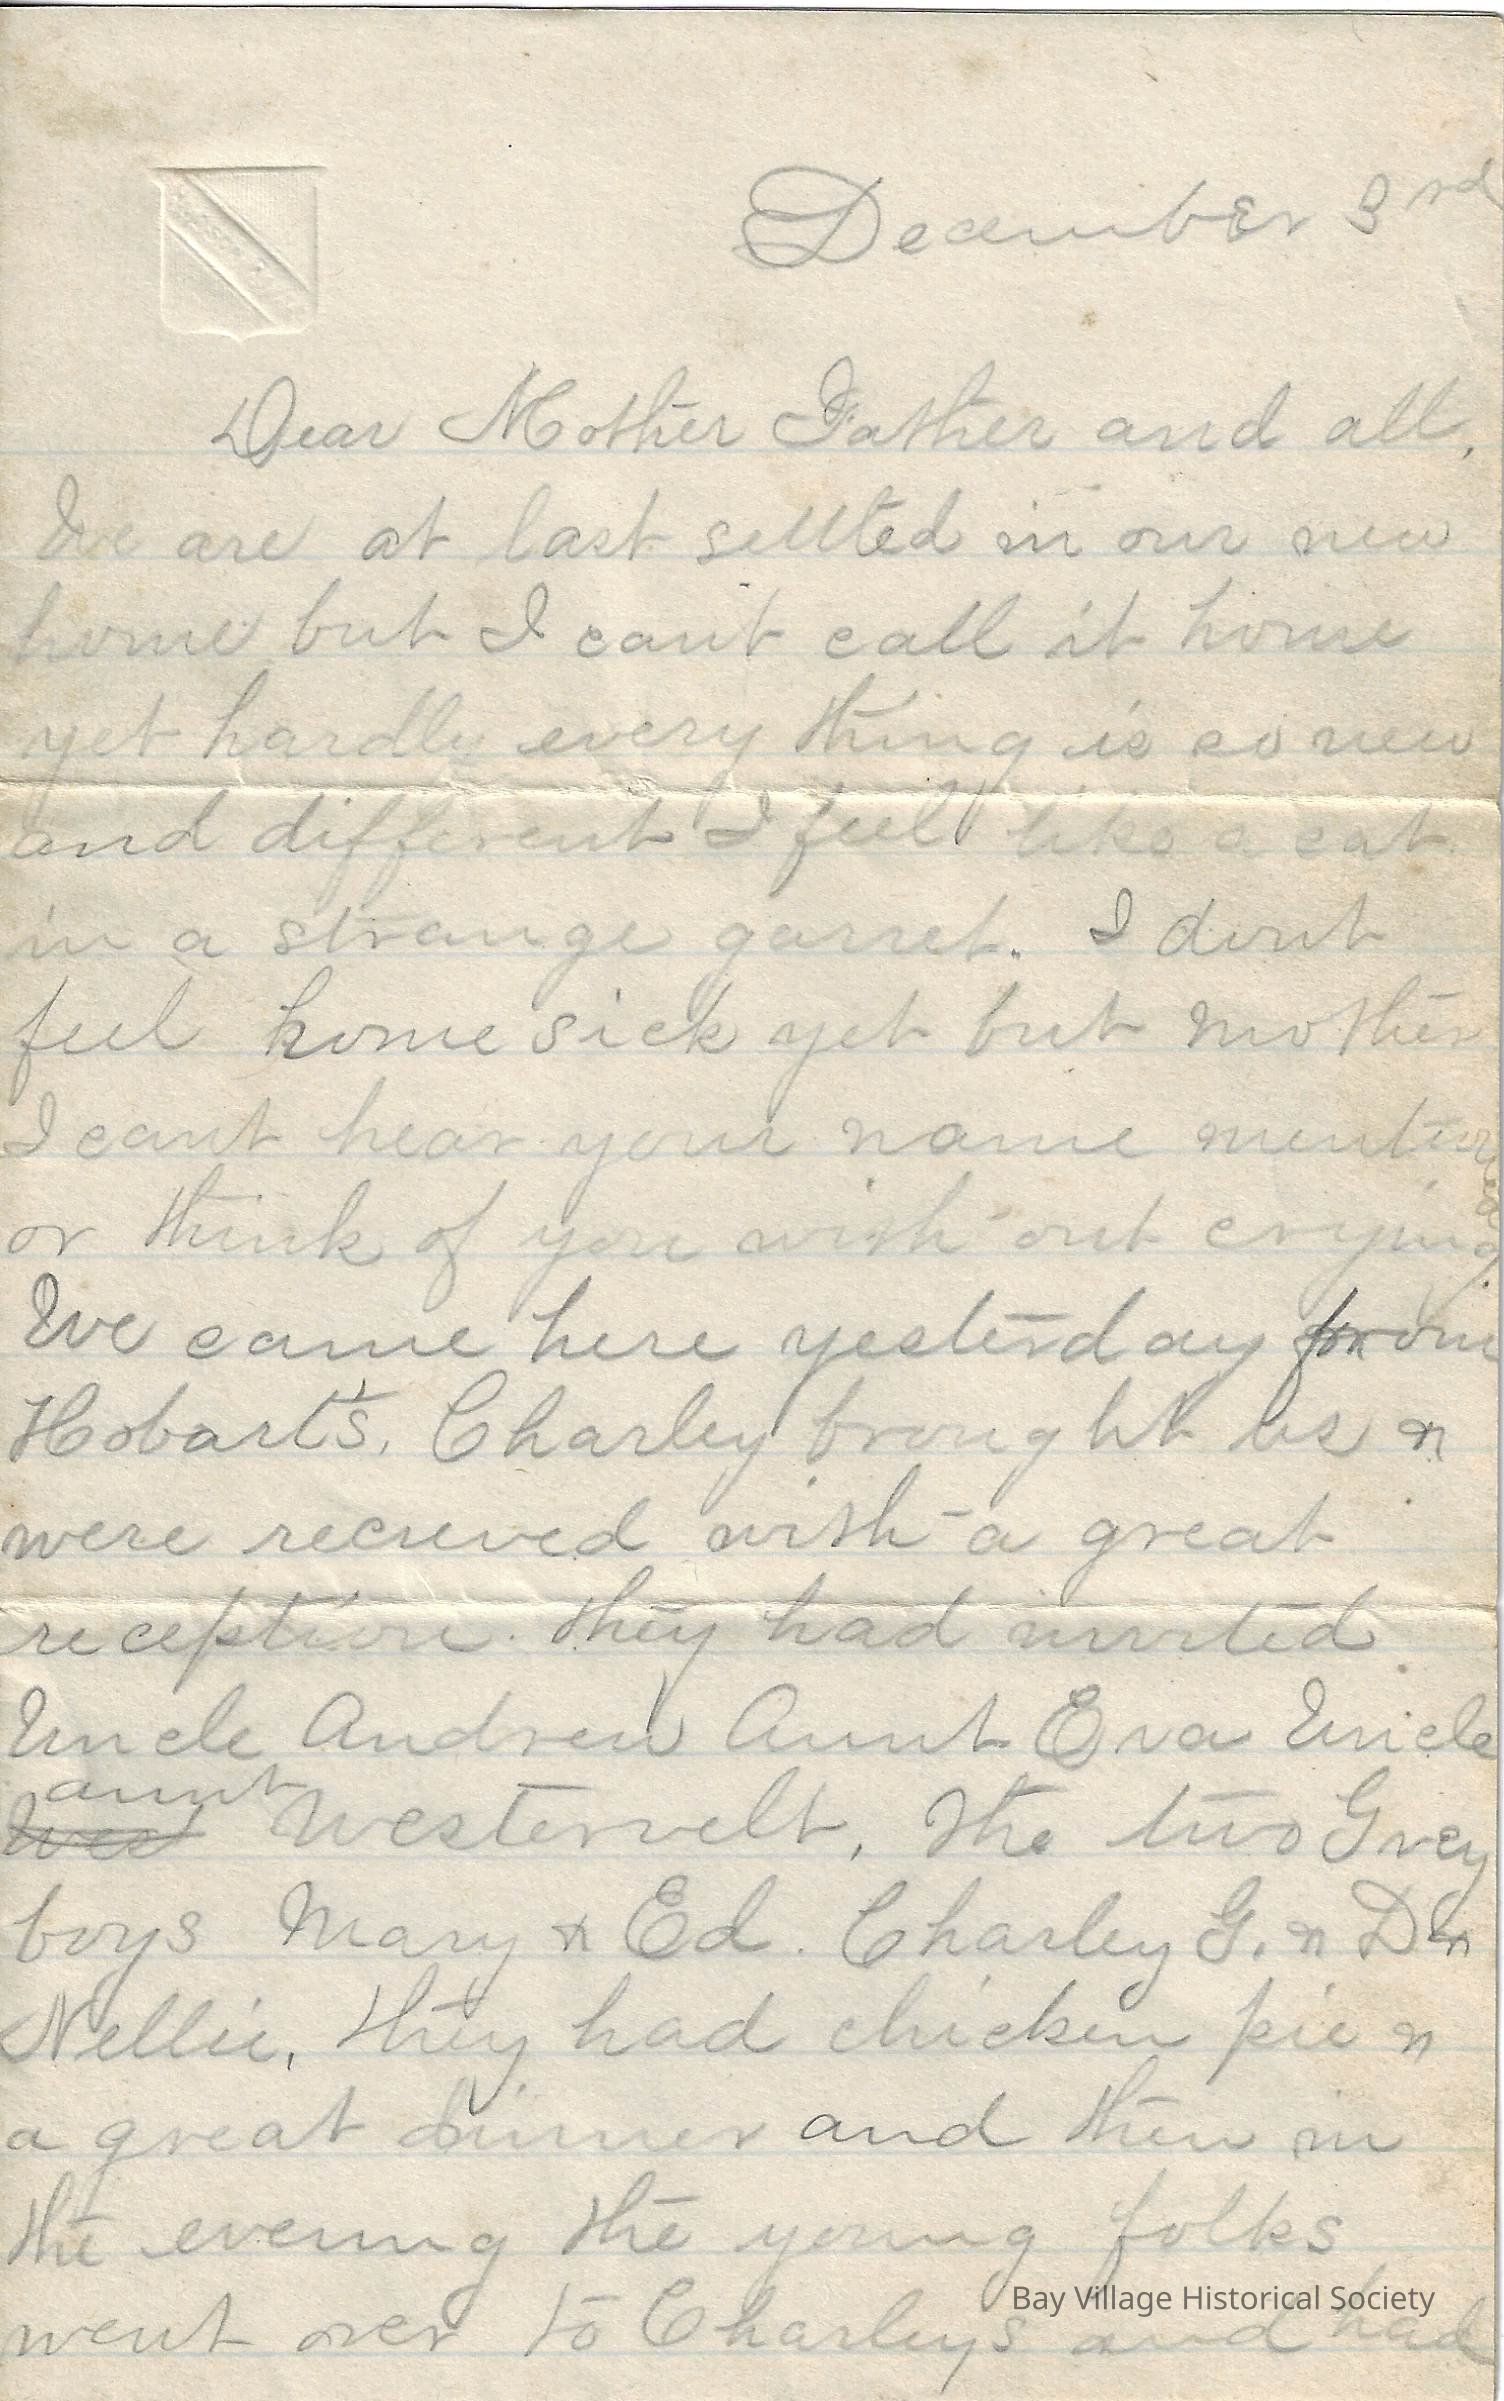 December 3rd
Dear Mother Father and all,
We are at last settlted in our new
home but I cant call it home
yet hardly every thing is so new
and different I feel like a cat
in a strange garret. I dont
feel home sick yet but mother
I cant hear your name mentioned
or think of you with out crying.
We came here yesterday from
Hobart's, Charley brought us &
were recieved with a great
reception. they had invited
Uncle Andrew Aunt Eva Uncle
aunt
West Westervelt, the two Grey
boys Mary & Ed. Charley G. & D &
Nellie, they had chicken pie &
a great dinner and then in
the evening the young folks
went over to Charleys and had
Bay Village Historical Society